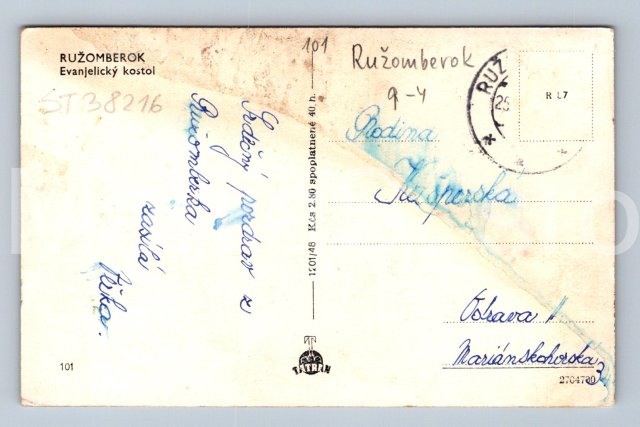 RUŽOMBEROK
Evanjelický kostol
ST38216
Srdečný pozdrav z
Ružomberka
zasílá
Jirka.
101
1201/48 Kčs 2.80 spoplatnené 40 h.
TATRAN
101
Ružomberok
9-4
RUŽ
25
R 17
Rodina
Kašperská
Ostrava II
Mariánskohorská
3
2704700